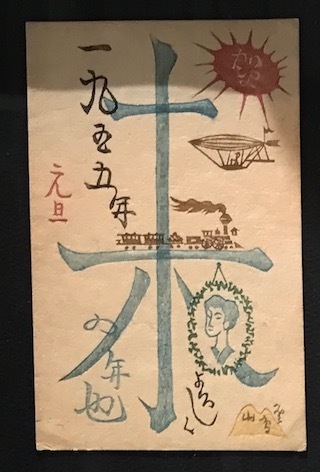 一九五五年
元旦
未
の年也
よろしく